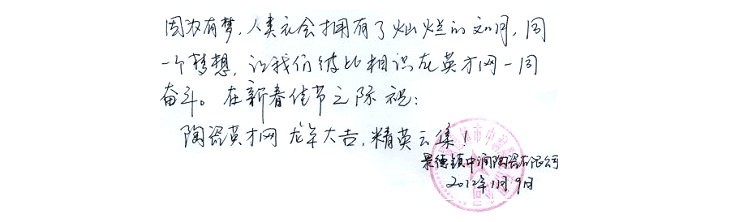 因为有梦，人类社会才拥有了灿烂的文明，同
一个梦想，让我们彼此相识在英才网一同
奋斗。在新春佳节之际祝：
陶瓷英才网 龙年大吉，精英云集！
景德镇中润陶瓷有限公司
2012年1月9日